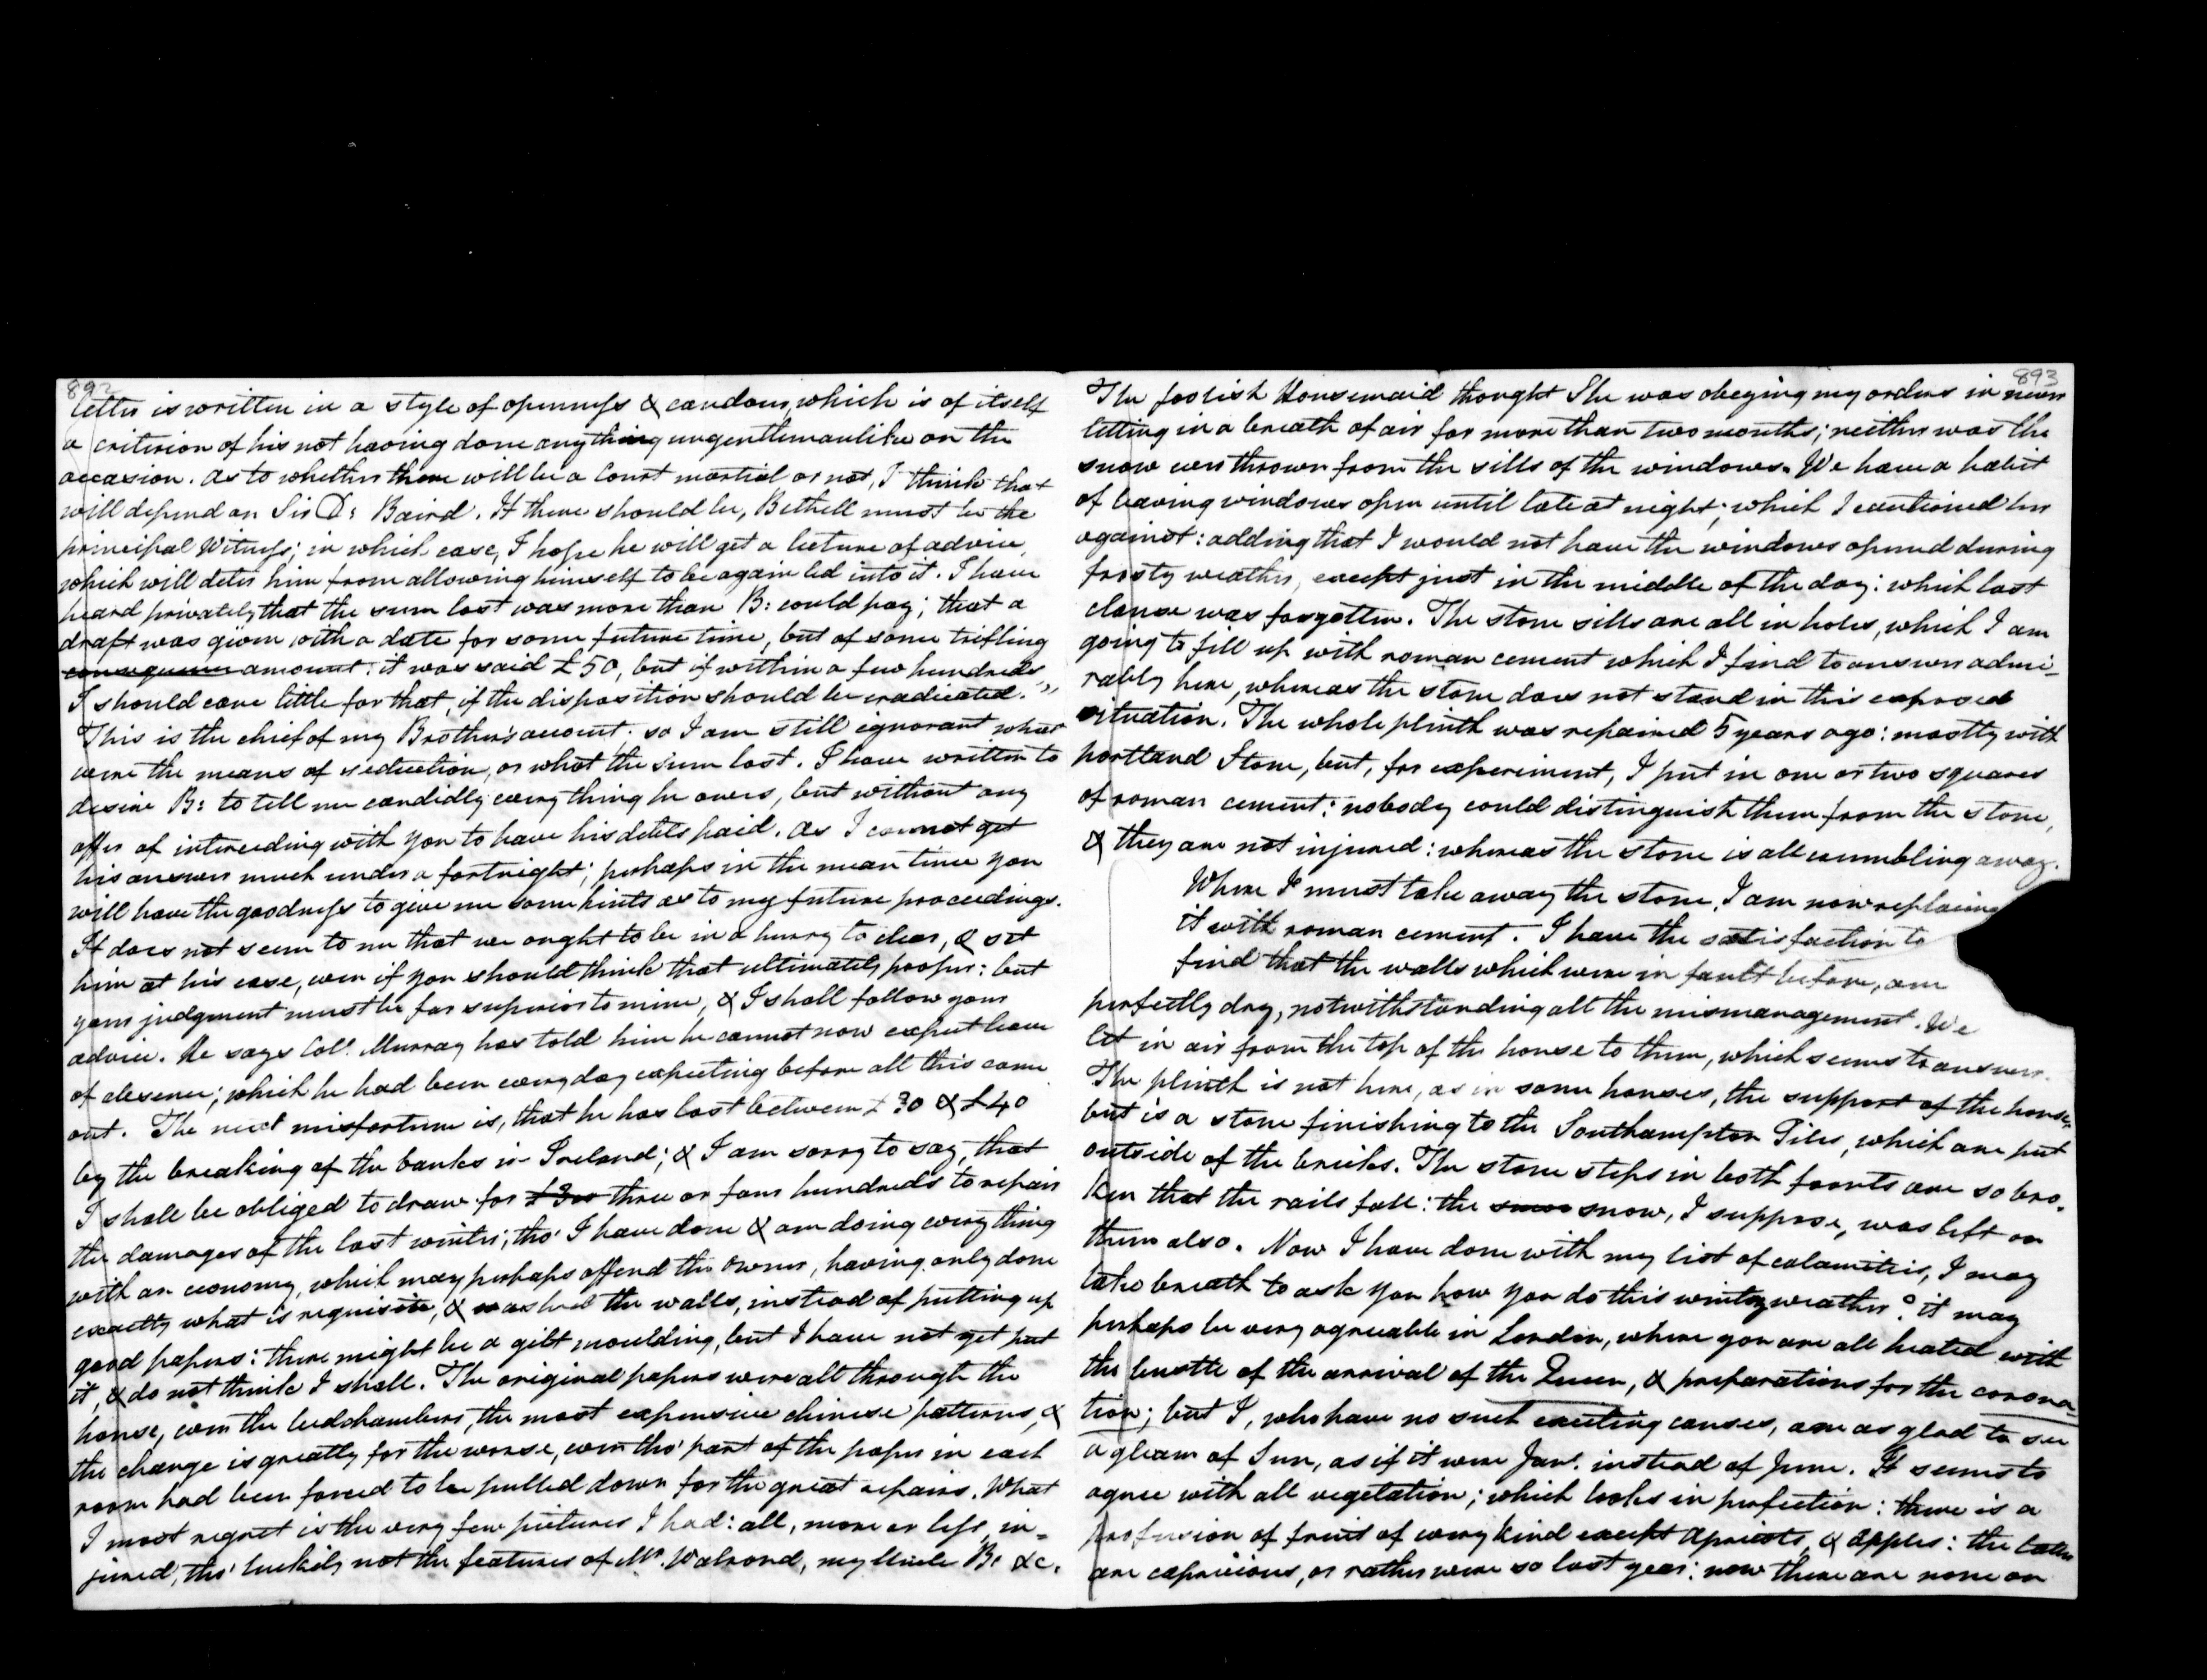 892
letter is written in a style of openness & candour, which is of itself
a criterion of his not having done anything ungentlemanlike on the
occasion. As to whether there will be a Court martial or not, I think that
will depend on Sir D: Baird. If there should be, Bethell must be the
principal Witness; in which case, I hope he will get a lecture of advice,
which will deter him from allowing himself to be again led into it. I have
heard privately that the sum lost was more than B: could pay; that a
draft was given with a date for some future time, but of some trifling
consequence amount: it was said £50, but if within a few hundreds
I should care little for that, if the disposition should be eradicated."
This is the chief of my Brother's account; so I am still ignorant what
were the means of seduction, or what the sum lost. I have written to
desire B: to tell me candidly every thing he owes, but without any
offer of interceding with you to have his debts paid. As I cannot get
his answer much under a fortnight; perhaps in the mean time you
will have the goodness to give me some hints as to my future proceedings.
It does not seem to me that we ought to be in a hurry to clear, & set
him at his ease, even if you should think that ultimately proper: but
your judgment must be far superior to mine, & I shall follow your
advice. He says Coll. Murray has told him he cannot now expect leave
of absence; which he had been every day expecting before all this came
out. The next misfortune is, that he has lost between £30 & £40
by the breaking of the banks in Ireland; & I am sorry to say, that
I shall be obliged to draw for £300 three or four hundreds to repair
the damages of the last winter; tho' I have done & am doing every thing
with an economy, which may perhaps offend the Owner, having only done
exactly what is requisite, & washed the walls, instead of putting up
good papers: there might be a gilt moulding, but I have not yet put
it, & do not think I shall. The original papers were all through the
house, even the bedchambers, the most expensive chinese patterns, &
the change is greatly for the worse, even tho' part of the paper in each
room had been forced to be pulled down for the great repairs. What
I most regret is the very few pictures I had: all, more or less, in-
jured, tho' luckily not the features of Mr. Walrond, my Uncle B: &c.
893
The foolish Housemaid thought She was obeying my orders in never
letting in a breath of air for more than two months; neither was the
snow ever thrown from the sills of the windows. We have a habit
of leaving windows open until late at night; which I cautioned her
against: adding that I would not have the windows opened during
frosty weather, except just in the middle of the day: which last
clause was forgotten. The stone sills are all in holes, which I am
going to fill up with roman cement which I find to answer admi-
rably here, whereas the stone does not stand in this exposed
situation. The whole plinth was repaired 5 years ago: mostly with
portland Stone, but, for experiment, I put in one or two squares
of roman cement: nobody could distinguish them from the stone,
& they are not injured: whereas the stone is all crumbling away.
Where I must take away the stone, I am now replacing
it with roman cement. I have the satisfaction to
find that the walls which were in fault before, are
perfectly dry, notwithstanding all the mismanagement. We
let in air from the top of the house to them, which seems to answer.
The plinth is not here, as in some houses, the support of the house,
but is a stone finishing to the Southampton Tiles, which are put
outside of the bricks. The stone steps in both fronts are so bro-
ken that the rails fall: the snow snow, I suppose, was left on
them also. Now I have done with my list of calamities, I may
take breath to ask you how you do this wintry weather? it may
perhaps be very agreeable in London, where you are all heated with
the bustle of the arrival of the Queen, & preparations for the corona-
tion; but I, who have no such exciting causes, am as glad to see
a gleam of Sun, as if it were Jan'. instead of June. It seems to
agree with all vegetation; which looks in perfection: there is a
profusion of fruit of every kind except apricots, & apples: the latter
are capricious, or rather were so last year: now there are none on